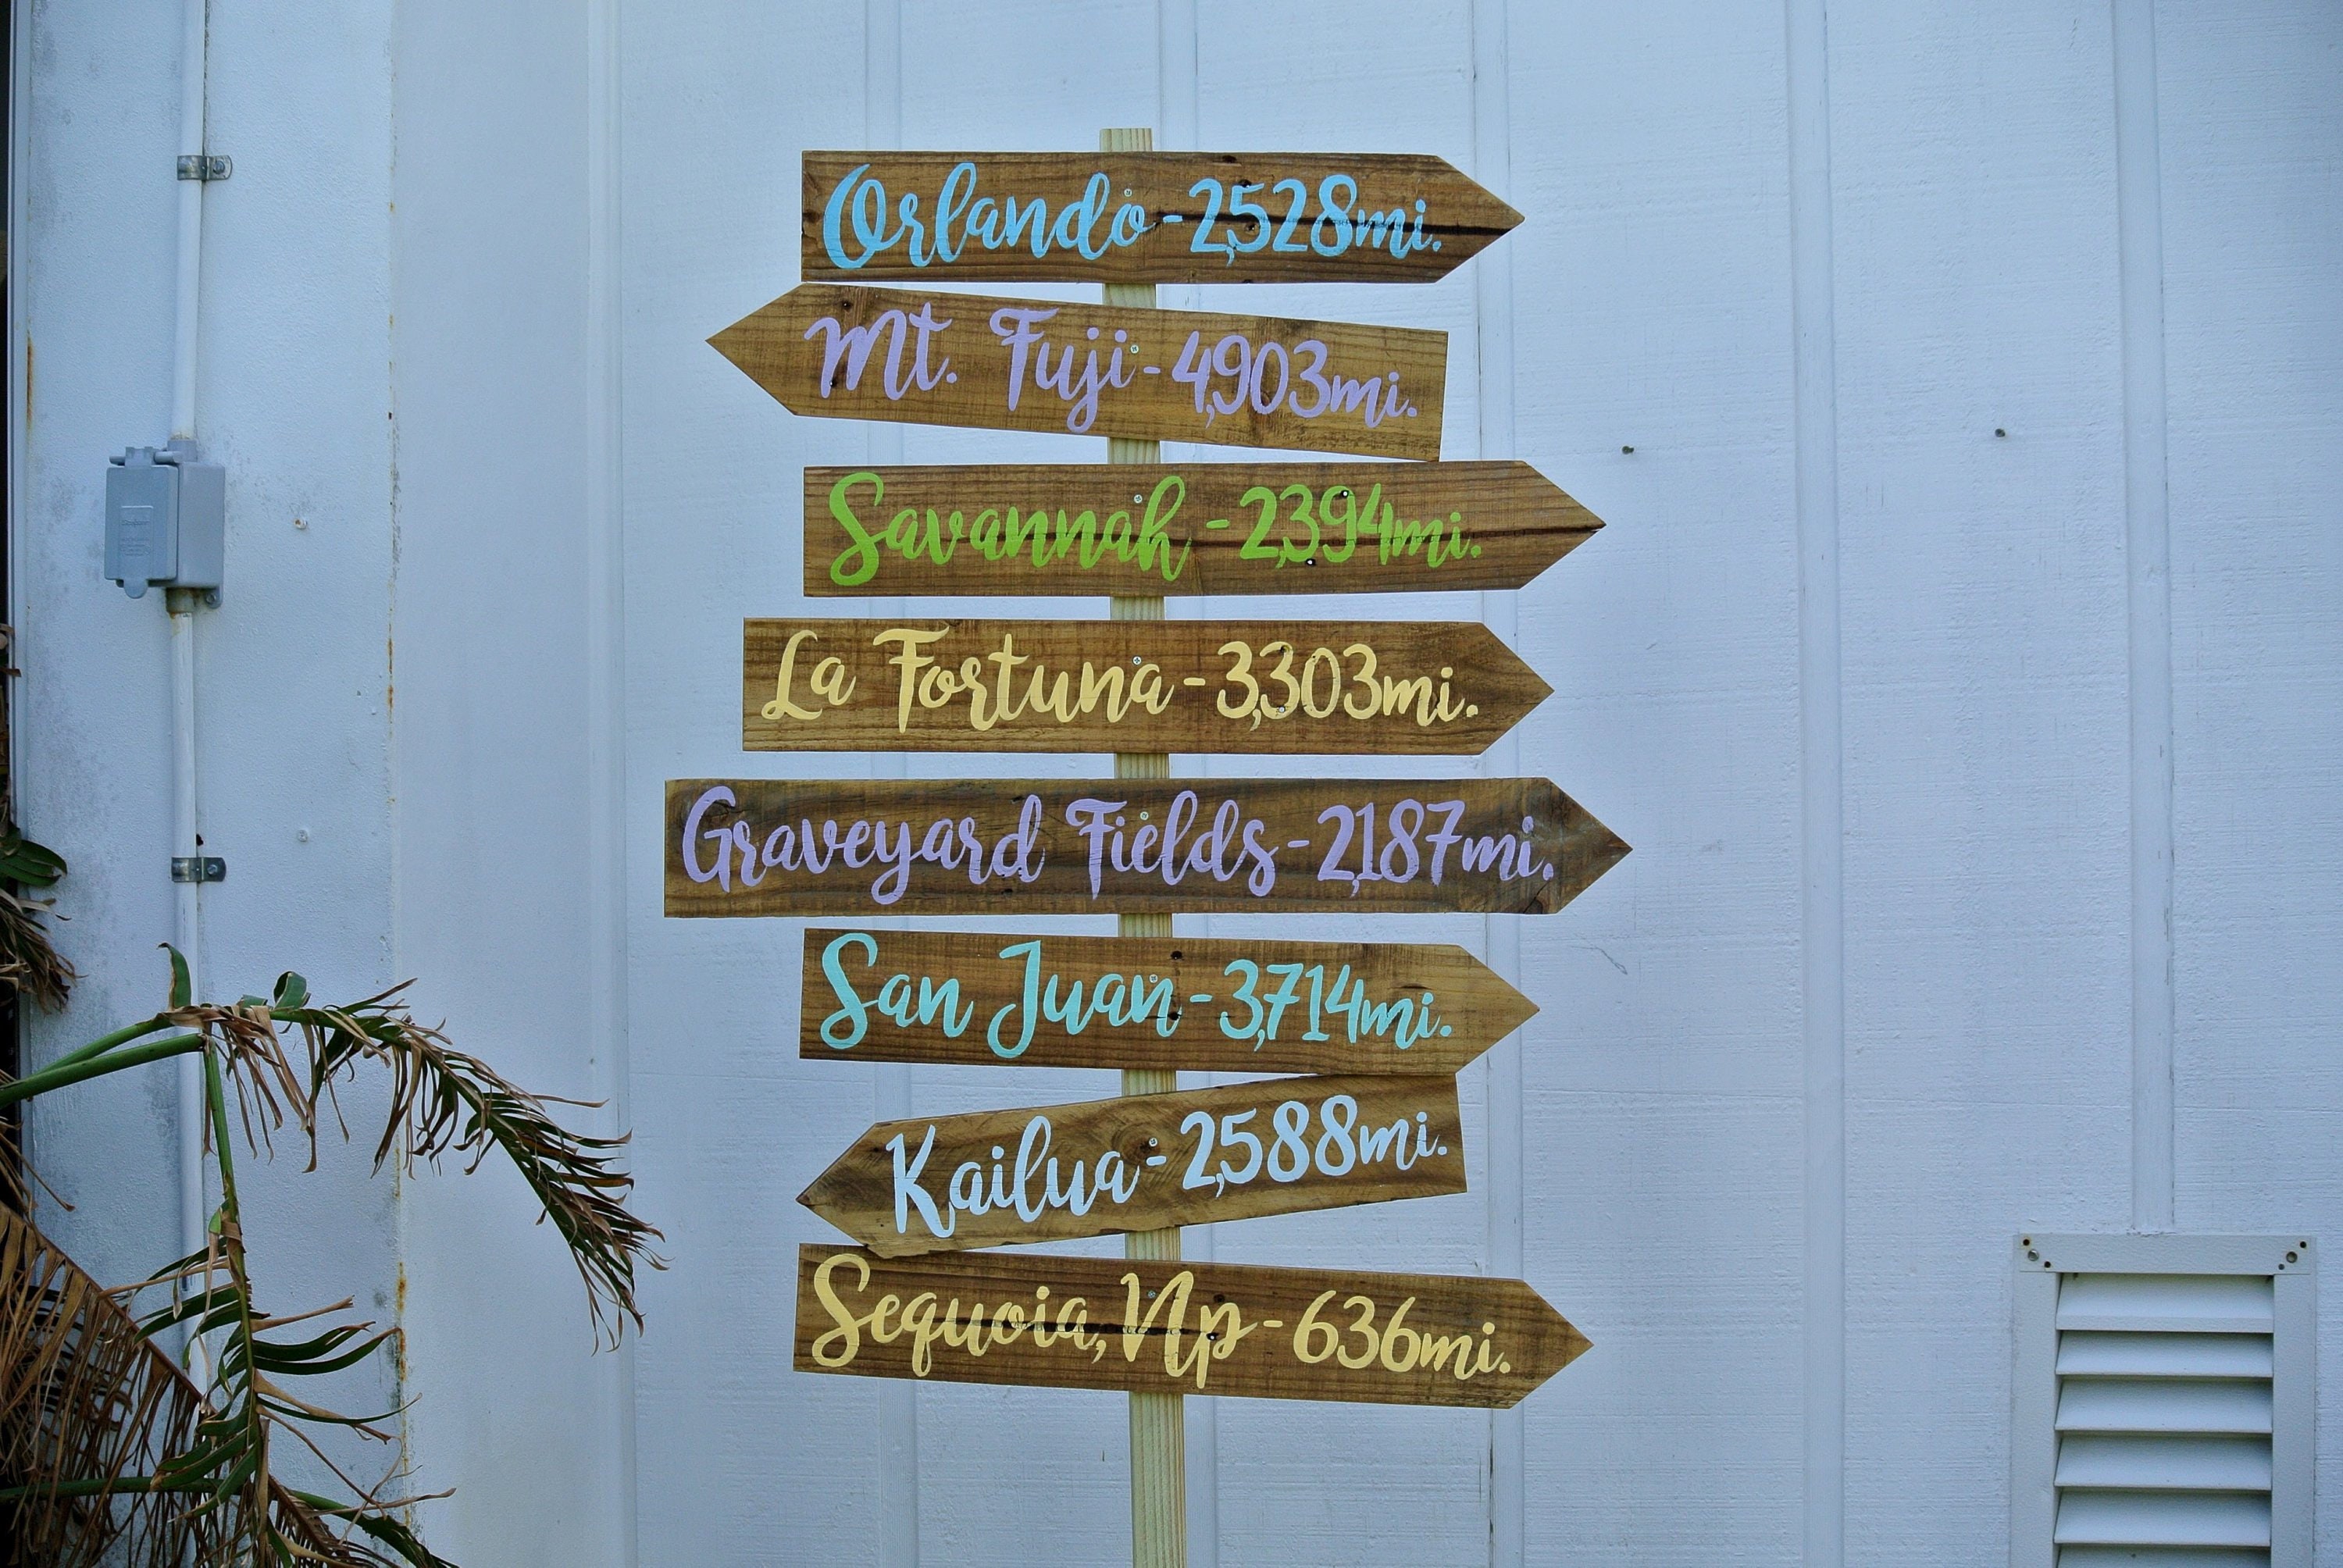 Orlando - 2,528mi.
Mt. Fuji - 4,903mi.
Savannah - 2,394mi.
La Fortuna - 3,303mi.
Graveyard Fields - 2,187mi.
San Juan - 3,714mi.
Kailua - 2,588mi.
Sequoia, Np - 636mi.